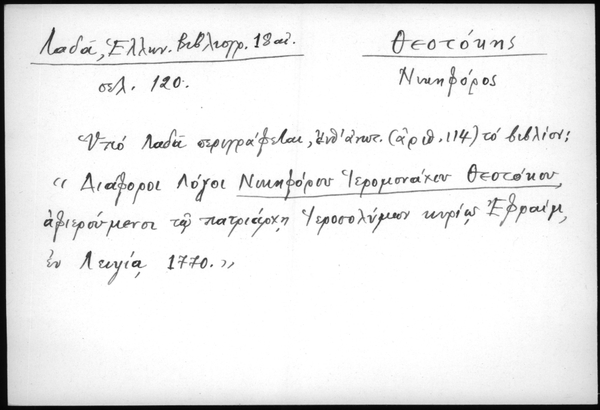 Λαδᾶ, Ἑλλην. Βιβλιογρ. 18 αἰ.
ΘΕΟΤΌΚΗΣ
σελ. 120.
Νικηφόρος
Ὑπὸ Λαδᾶ περιγράφεται, (ἀριθ. 114) τὸ βιβλίον:
« Διάφοροι Λόγοι Νικηφόρου Ἱερομονάχου Θεοτόκου,
ἀφιερούμενοι τῷ πατριάρχῃ Ἱεροσολύμων κυρίῳ Ἐφραίμ,
ἐν Λειψίᾳ 1770. »